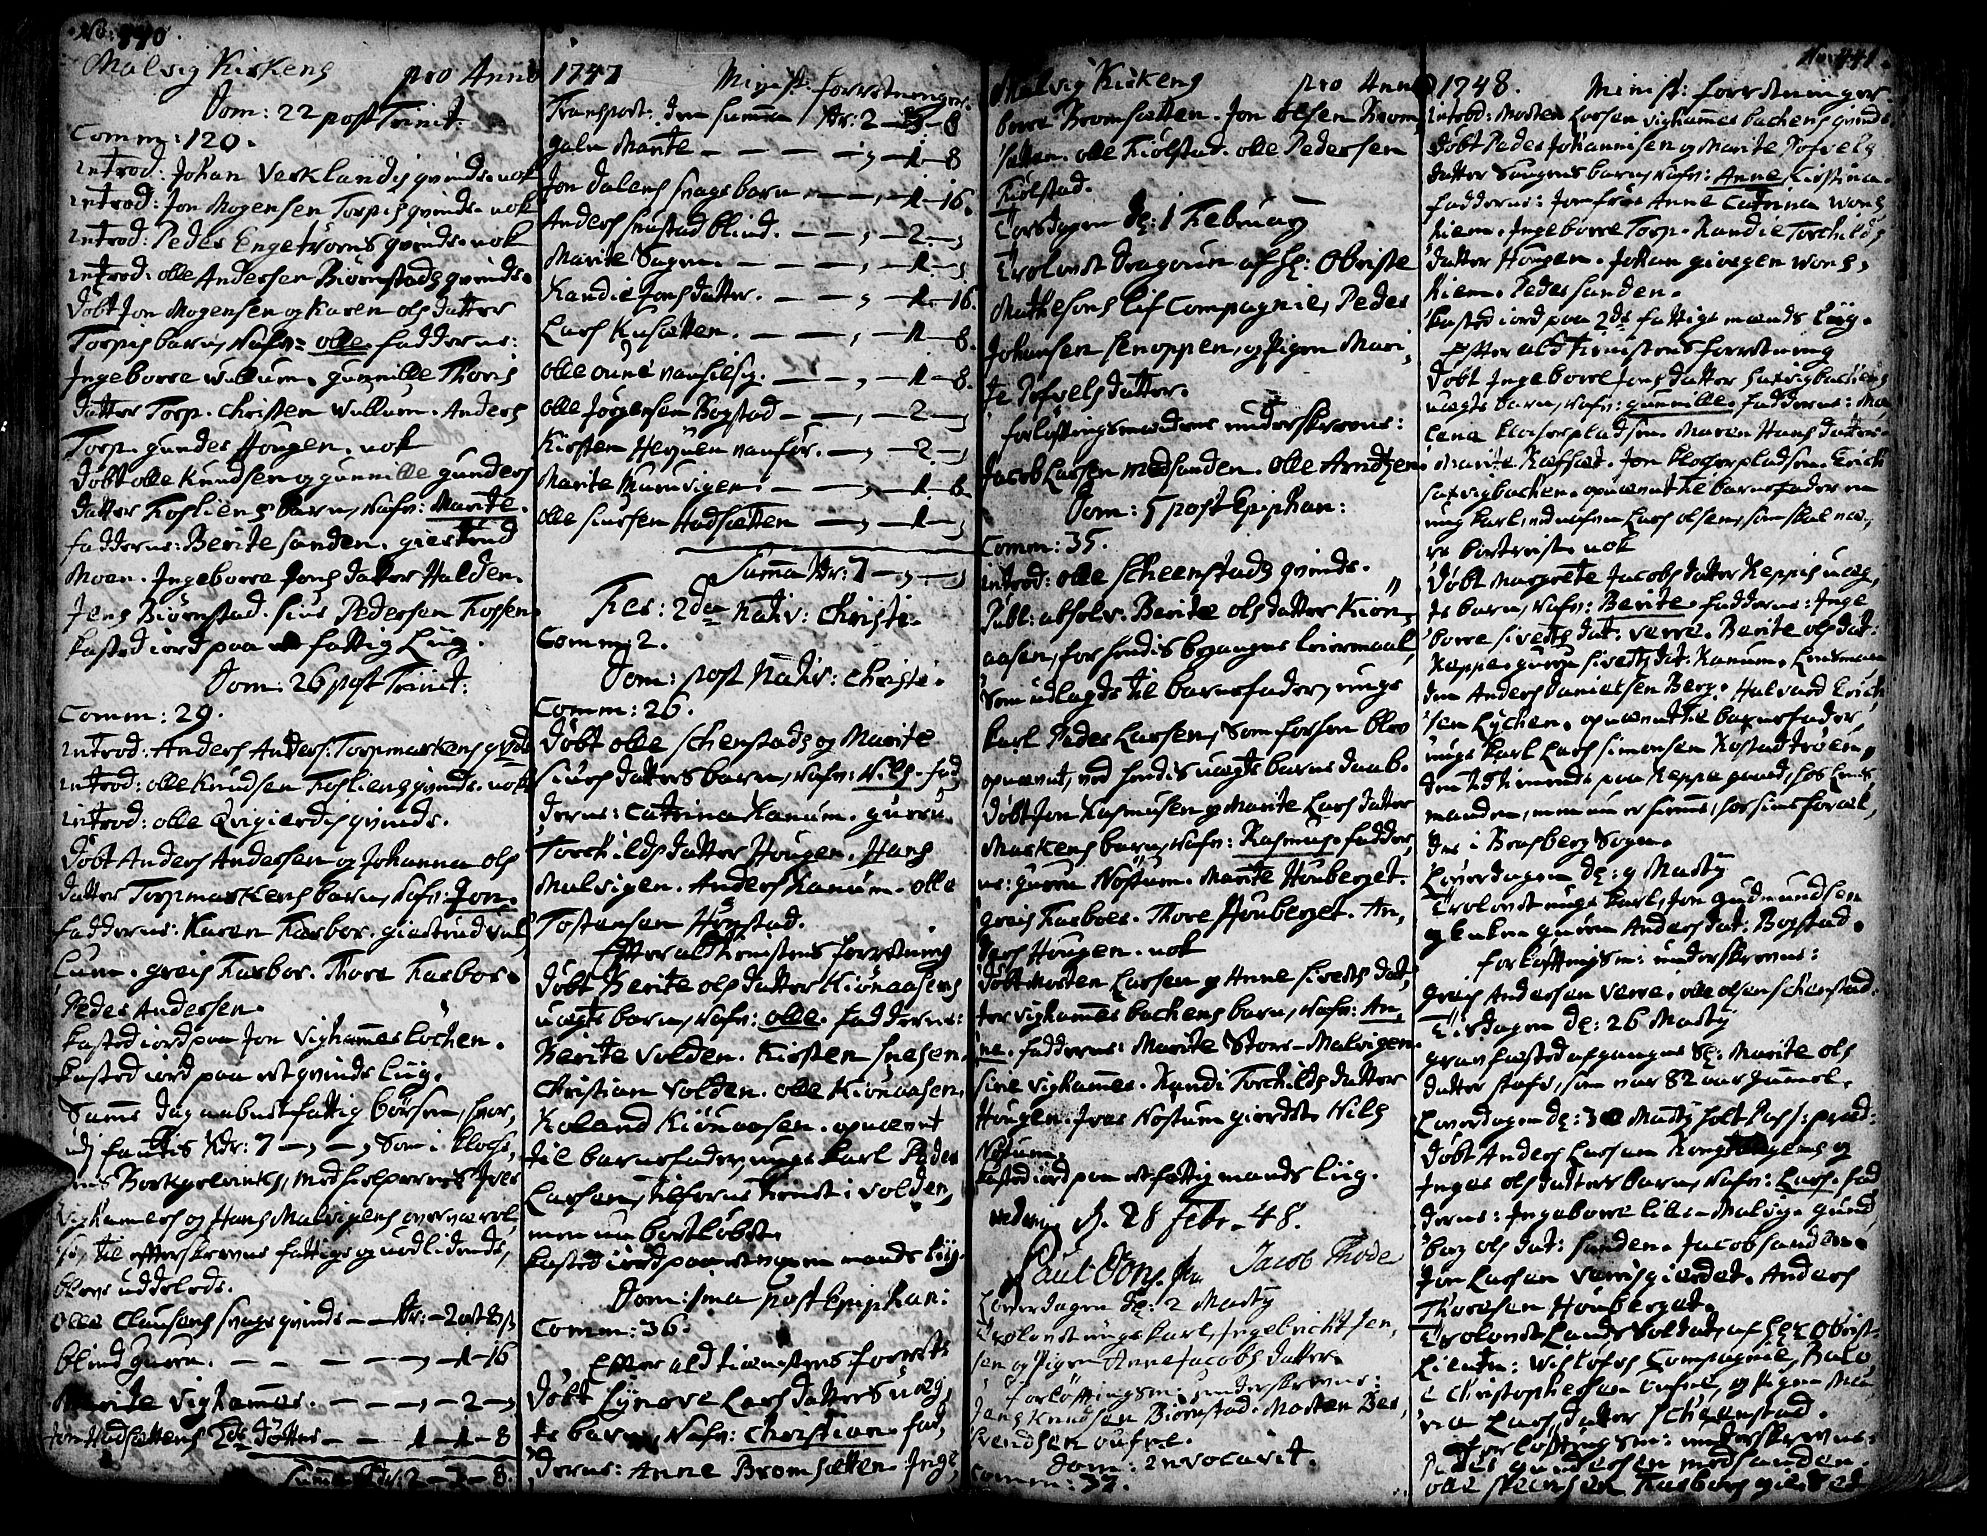 No: 440.
Malvig Kirkens pro Anno
Dom: 22 post Trinit:
Comm: 120.
introd: Johan Verklandis qvinde. nok
introd: Jon Mogensen Torpis qvinde. nok
introd: Peder Engetrøens qvinde. nok
introd: olle Andersen Biørnstads qvinde.
døbt Jon Mogensen og Karen ols datter
Torpis barn, Nafn: olle. fadderne:
Ingeborre wullum. gunnille Thoris
datter Torp. Christen Wullum. Anders
Torp. gunder Hougen. nok
døbt olle Knudsen og gunnille gunders
datter Foslienes barn, Nafn: Marite.
fadderne: Berite sanden. giertrud
Moen. Ingeborre Jens datter Halden.
Jens Biørnstad. Siur Pedersen Fossen
kasted iord paa et fattig Liig.
Dom: 26 post Trinit:
Comm: 29.
introd: Anders Anders: Torpmarkens qvinde
introd: olle Knudsen Foslienes qvinde. nok
introd: olle Qvigierdis qvinde.
døbt Anders Andersen og Johanna ols
datter Torpmarkens barn, Nafn: Jon.
fadderne: Karen Karbor. giertrud vul
Lum. greis Karbor. Thore Karbor.
Peder Andersen.
kasted iord paa Jon Vighammesløchen.
kasted iord paa et qvinds Liig.
Samme dag aabnet fattig børsen, hvor,
udj fantis Rdr: 7 — , — , Som i klocke,
rens Borkgrevinks, Medhielpernes Iver
Vighammers og Hans Malvigens overværel
se, til efterskrevne fattige og nødlidende,
blev uddeelede.
Olle Clausens svage qvinde — — Rdr: — 2 ort 8 s
blind Guru. — — — — , — 1 — 16
Marite Vighammer. — — , — 2 — ,
Jon Hadsettens 2de døttre — — 1 — 1 — 8
Summa Rdr: 2 — 3 — 8.
1747 Minist: forretninger.
Transport: den summa Rdr: 2 — 3 — 8
galn Marite — — — — , — 1 — 8
Jon dalens svage barn — — , — 1 — 16.
Anders snustad blind. — — , — 2 — ,
Marite Sagen. — — — , — 1 — ,
Randie Jons datter. — — , — 1 — 16.
Lars Kusetten. — — — , — 1 — 8.
olle vanfør. — — , — 1 — 8.
olle Jørgensen Bogstad — — , — 2 — ,
Kirsten Herjuen vanfør. — , — 2 — ,
Marite Muruvigen. — — , — 1 — 8
olle siursen Hadsetten — , — 1 — ,
Summa Rdr: 7 — , — ,
Fer: 2da Nativ: Christi.
Comm: 2.
Dom: post Nativ: Christi.
Comm: 26.
døbt olle schenstads og Marite
siurs datters barn, Nafn: Nils. fad
derne: Catrina Kanum. guru
Torchilds datter Hougen. Hans
Malvigen. Anders Kanum. olle
Tostensen Hogstad.
Efter ald tienistens forretning
døbt Berite ols datter Kiønaasens
uægte barn, Nafn: olle. fadderne:
Berite Volden. Kirsten snesen.
Christian Volden. olle Kiønaasen.
Roland Kiønaasen. opnævnt
til barnefader, unge karl Peder
Larsen, tilforne tienst i Volden,
men nu bortløbet.
kasted iord paa et ungen mands liig.
Dom: 1ma post Epiphan:
Comm: 36.
Efter ald tienistens forrett:
døbt Synove Lars datters uæg,
te barn, Nafn: Christian. fad,
derne: Anne Bromsetten. Inge,
Malvig Kirkens pro Anno
borre Bromsetten. Jon olsen Brom,
setten. olle Kiølstad. olle Pedersen
Kiølstad.
Torsdagen d: 1 February
Trolovet dragoun af H: Obriste
Mathesons lif Compagnie, Peder
Johansen snoppen, og Pigen Mari,
te Tofvels datter.
forløftingsmændene underskrevne:
Jacob Larsen medsanden. olle Arndtzen.
Dom: 5 post Epiphan:
Comm: 35.
introd: olle scheenstads qvinde.
Publ: absolv. Berite ols datter Kiøn,
aasen, for hendis begangne leiermaal,
Som udlagde til barnefader, unge
karl Peder Larsen, Som forhen blev
opnævnt, ved hendis uægte barns daab.
døbt Jon Rasmusen og Marite Lars datter
Markens barn, Nafn: Rasmus. fadder,
ne: guru Nøstum. Marite Houberget.
greis Karboer. Thore Houberget. An,
ders Hougen. nok
døbt Morten Larsen og Anne Siverts dat,
ter vighammersbachens barn, Nafn: An,
ne. fadderne: Marite Store-Malvigen.
sive Vighammer. Randi Torchilds datter
Hougen. Iver Nøstum gierdet. Nils
Nøstum.
kasted iord paa et fattig mands liig.
d. 28 febr. 48.
Jacob Thode
Løverdagen d: 2 Marty
Trolovet unge karl, Ingebricht Jen,
sen og Pigen Anne Jacobs datter.
forløftingsm: underskrevne:
Jens Knudsen Biørnstad. Morten Ber,
Svendsen oufre.
Dom: Invocavit.
Comm: 37.
No: 441.
1748. Minist: forretninger.
introd: Morten Larsen vighammersbachens qvinde.
døbt Peder Johannisen og Marite Tofvels
datter Saugens barn, Nafn: Anne Kirstina.
fadderne: Jomfrue Anne Catrina Wons
hiem. Ingeborre Torp. Randie Torchilds
datter Hougen. Johan giørgen Wons,
hiem. Peder sanden.
kasted iord paa 2de fattige mænds liig.
Efter ald tienistens forretning
døbt Ingeborre Jons datter satvigbachens
uægte barn, Nafn: gunnille. fadderne: Ma,
lena klocherpladsen. Maren Hans datter
Marite Ræfset. Jon klocherpladsen. Erich
satvigbachen. opnævnt til barnefader en
ung karl, ved nafn Lars olsen, som skal væ,
re bortreist. nok
døbt Margrete Jacobs datter Reppis uæg,
te barn, Nafn: Berite. fadderne: Inge
borre siverts dat: verre. Berite ols dat:
Reppe. guru siverts dat: Kanum. Lensman
den Anders Danielsen Berg. Halvard Erich
sen Lychen. opnævnt til barnefader,
unge karl Lars Simonsen Rostadtrøen,
den tid tienende paa Reppe gaard, hos Lens,
manden, men nu er hiemme, hos sine foræl,
dre i Brasberg Sogn.
Løverdagen d: 9 Marty
Trolovet unge karl, Jon gudmundsen
og Enken guru Anders dat: Bogstad.
forløftingsm: underskrevne:
Greis Andersen Verre. olle olsen schenstad.
Tirsdagen d: 26 Marty
gravfæsted afgangne Sl: Marite ols
datter stafr, som var 82 aar gammel.
Løverdagen d: 30 Marty holt Pass: præd:
døbt Anders Larsen Kongshaugens og
Inger ols datters barn, Nafn: Lars. fad
derne: Ingeborre lille-Malvig. gund,
bor ols dat: sanden. Jacob sanden.
Jon Larsen Verrisgierdet. Anders
Thoresen Houberget.
Trolovet Lands Soldat, af H: Obrist-
Lieutn: Visløfs Compagnie, Baro,
Christophersen oufre, og Pigen Ma
ria Lars datter scheenstad.
forløftingsm: underskrevne:
Peder gundersen medsanden.
olle steensen Karboes gierdet